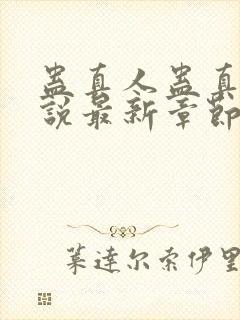 蛊真人蛊真
說最新章節
葉達尔索伊里